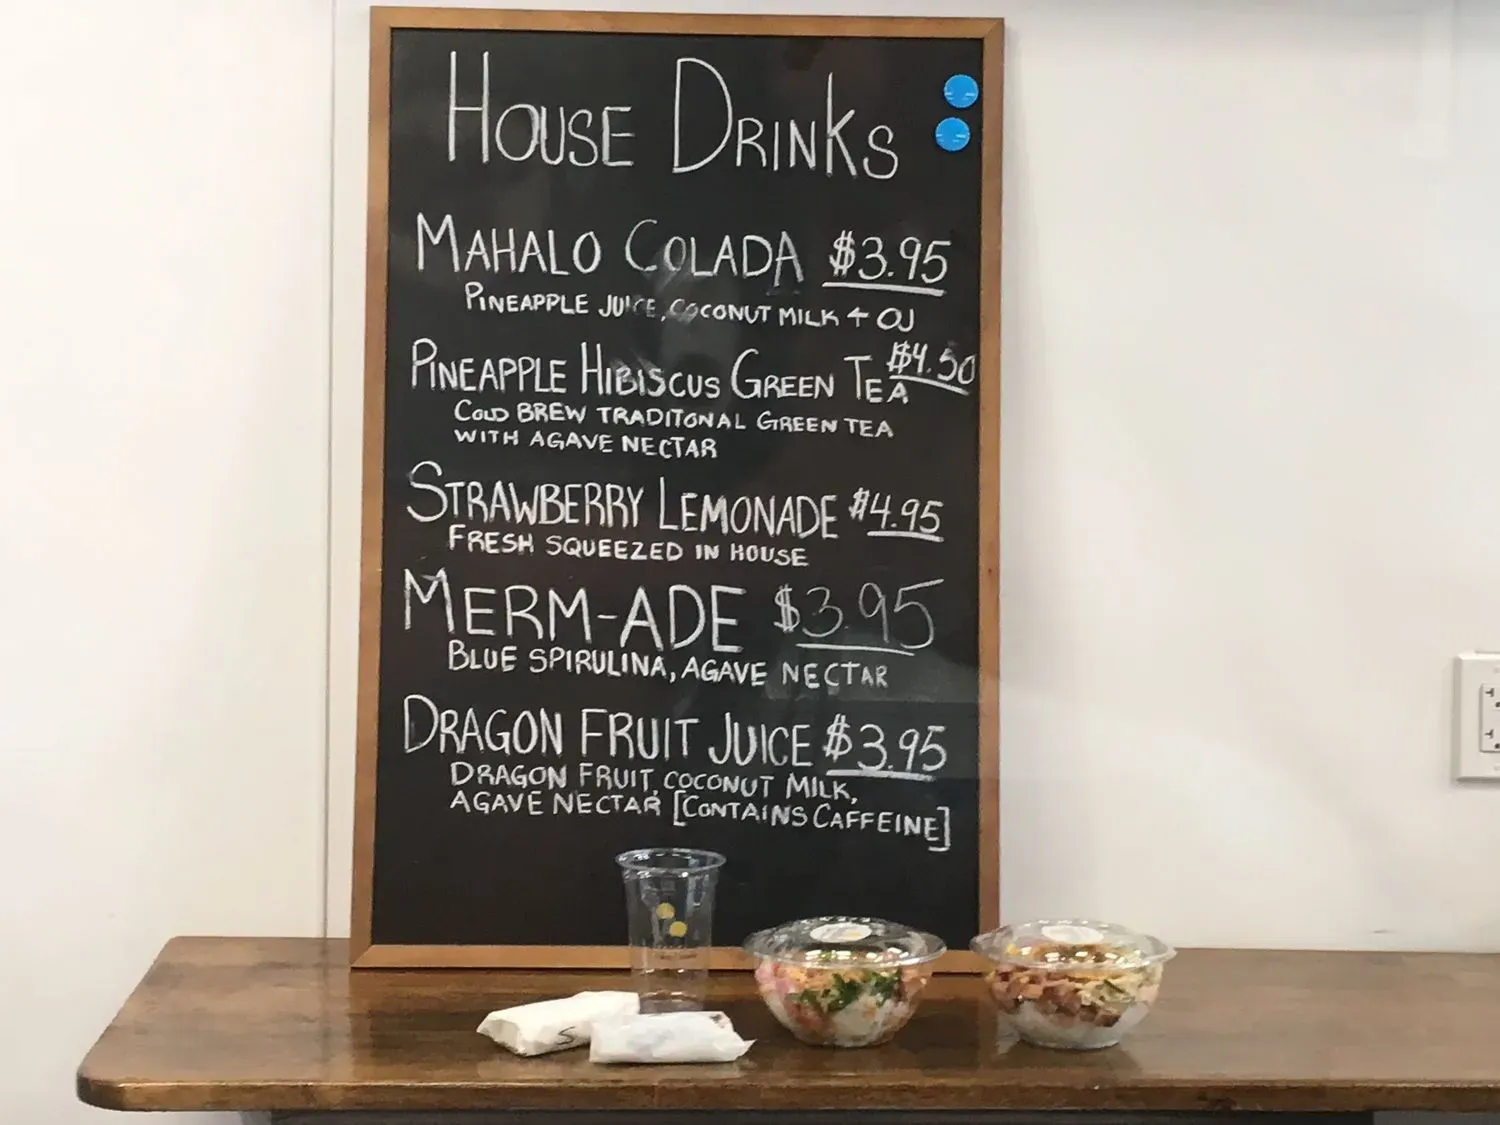 House Drinks
Mahalo Colada $3.95
Pineapple juice, coconut milk + OJ
Pineapple Hibiscus Green Tea $4.50
Cold brew traditonal green tea
with agave nectar
Strawberry Lemonade $4.95
Fresh squeezed in house
Merm-ade $3.95
Blue spirulina, agave nectar
Dragon Fruit Juice $3.95
Dragon fruit, coconut milk,
agave nectar [contains caffeine]
S